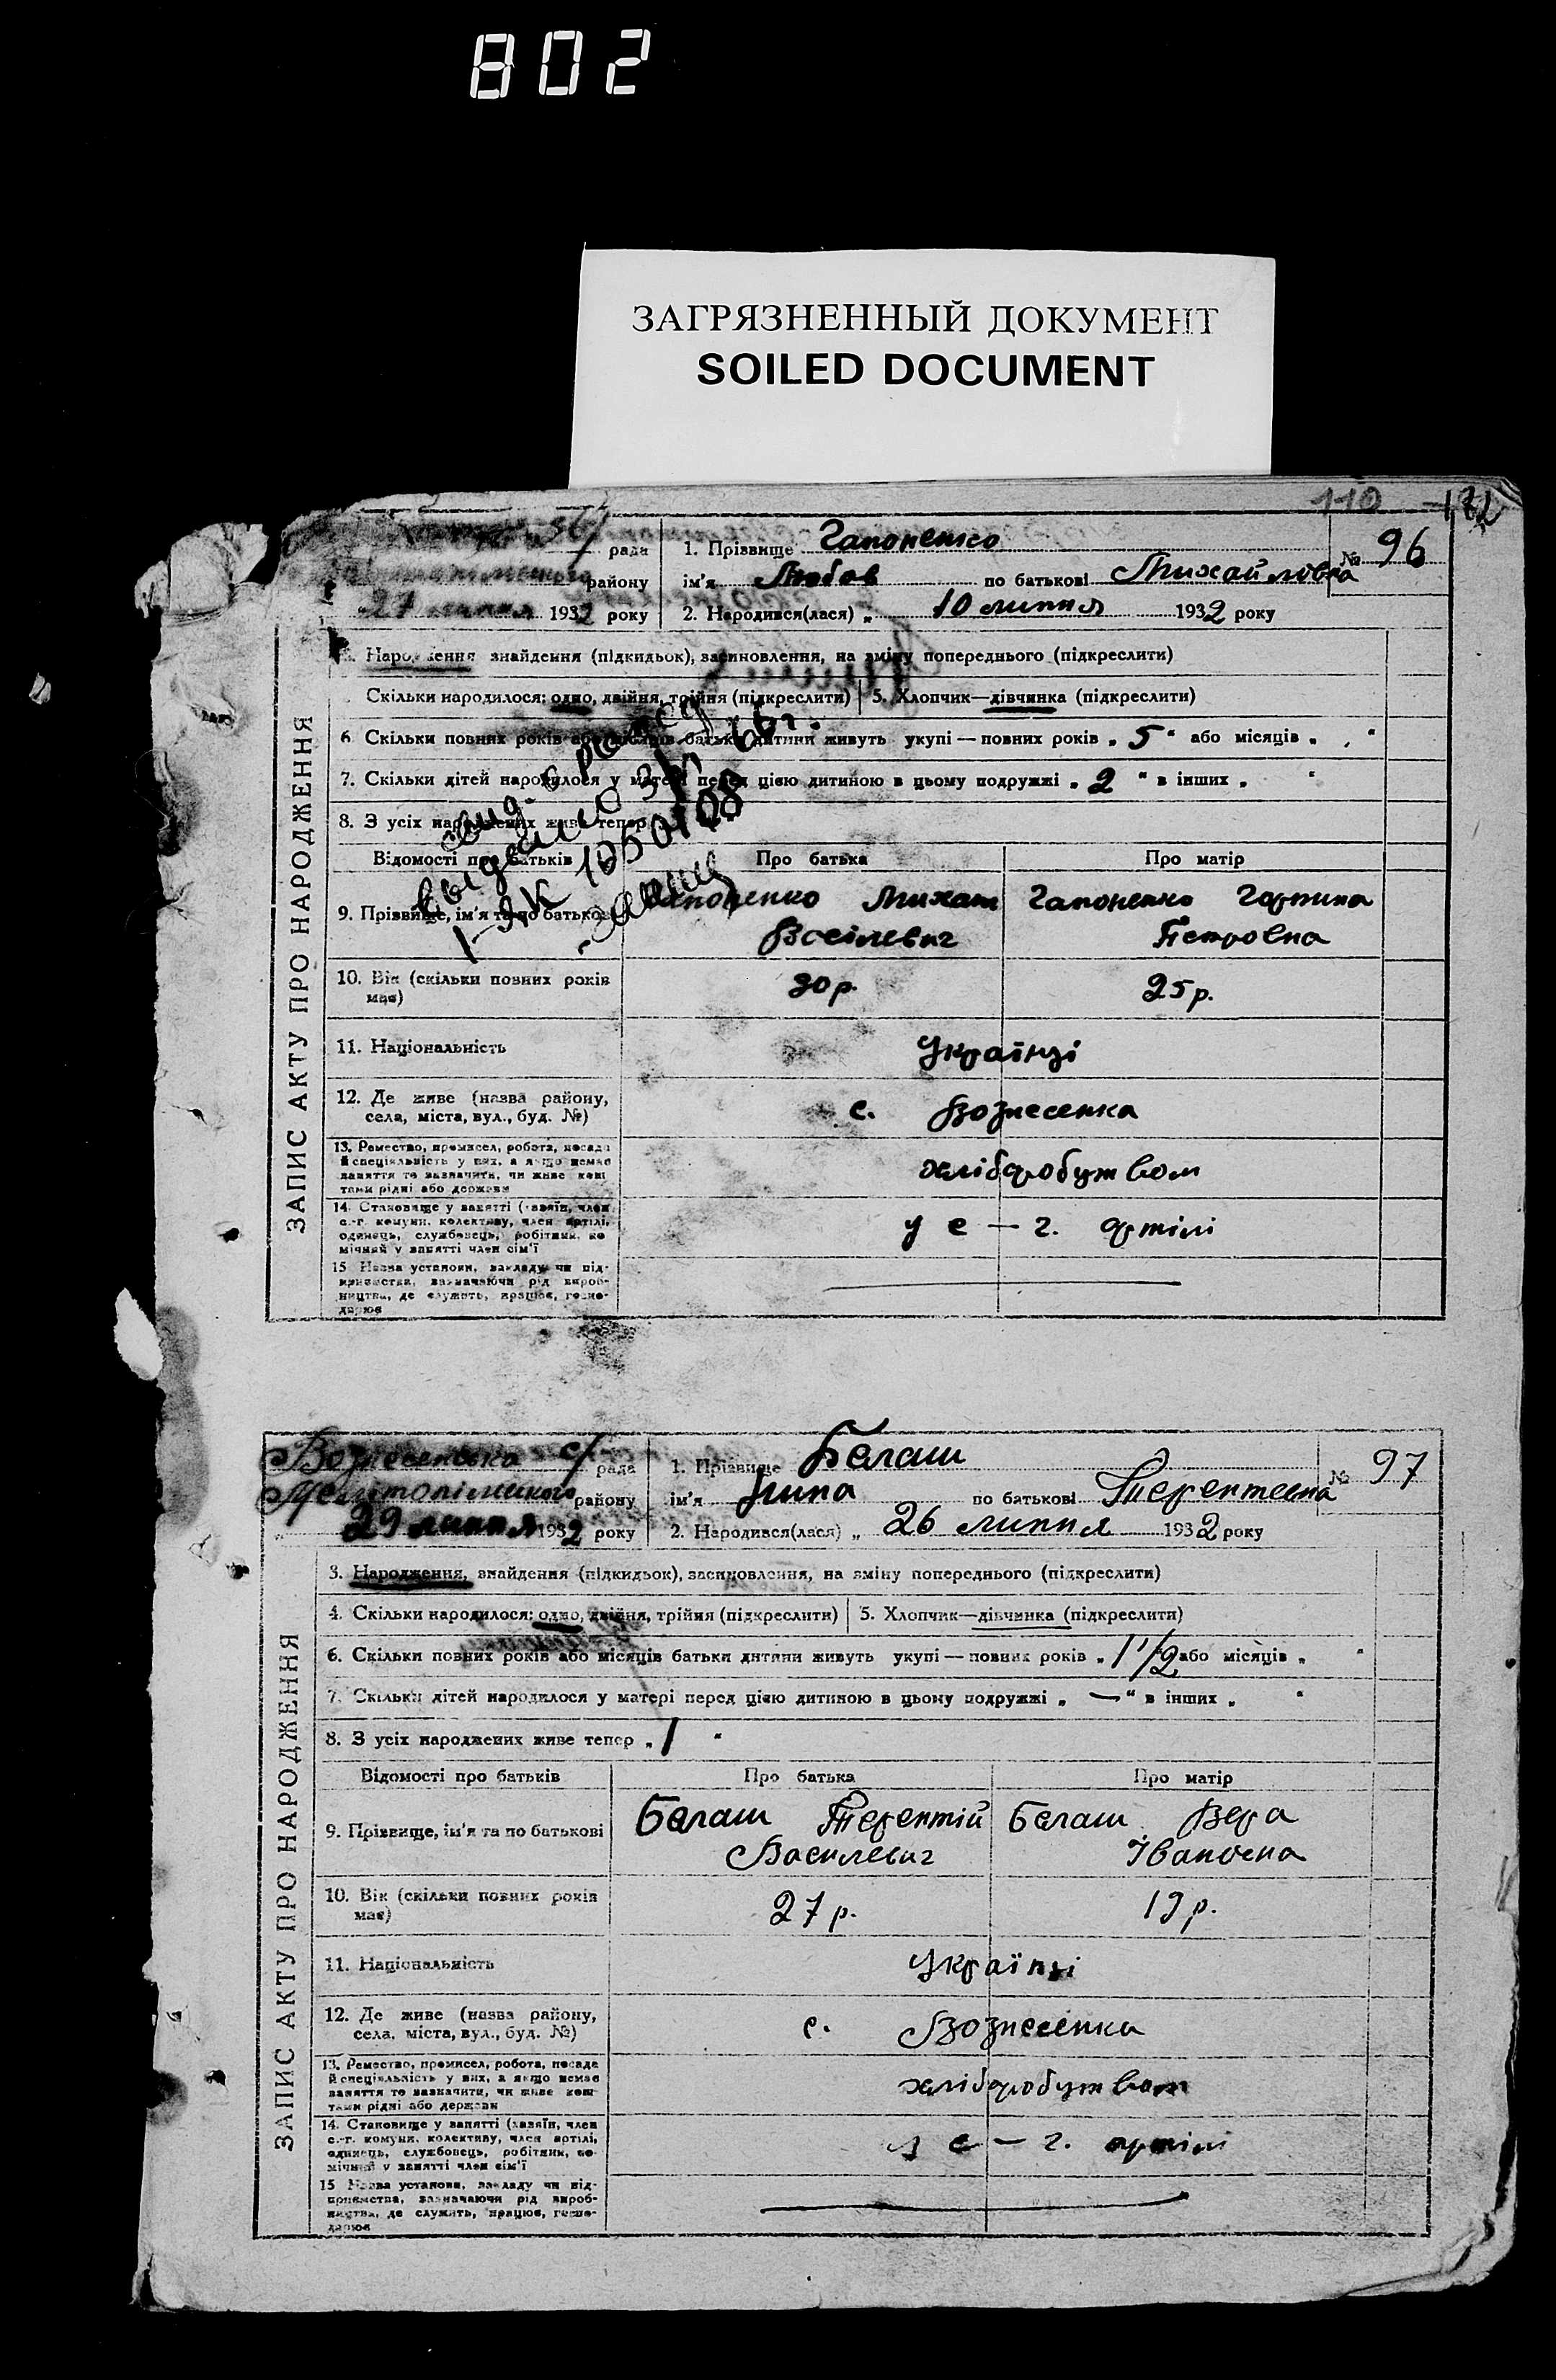 802
ЗАГРЯЗНЕННЫЙ ДОКУМЕНТ
SOILED DOCUMENT
110
ЗАПИС АКТУ ПРО НАРОДЖЕННЯ
с/ рада
району
27 липня 1932 року
1. Прізвище Гапоненко
№ 96
ім'я Любов по батькові Михайловна
2. Народився(лася) „ 10 липня 1932 року
Народження знайдення (підкидьок), засиновлення, на зміну попереднього (підкреслити)
Скільки народилося: одно, двійня, трійня (підкреслити) 5. Хлопчик—дівчинка (підкреслити)
6 Скільки повних років або місяців батьки дитини живуть укупі — повних років „ 5 " або місяців „ "
7. Скільки дітей народилося у матері перед цією дитиною в цьому подружжі „ 2 " в інших „ "
8. З усіх народжених живе тепер
Відомості про батьків Про батька Про матір
9. Прізвище, ім'я та по батькові Гапоненко Михаил Гапоненко Горпина
Васілевич Петровна
10. Вік (скільки повних років має) 30 р. 25 р.
11. Національність Українці
12. Де живе (назва району, села, міста, вул., буд. №) с. Вознесенка
13. Ремество, промисел, робота, посада й спеціяльність у них, а якщо немає заняття то зазначити, чи живе коштами рідні або держави хліборобутвом
14. Становище у занятті (хазяїн, член с.-г. комуни, колективу, член артілі, одинець, службовець, робітник, помічний у занятті член сім'ї у с — г. артілі
15 Назва установи, закладу чи підприємства, зазначаючи рід виробництва, де служить, працює, господарює
ЗАПИС АКТУ ПРО НАРОДЖЕННЯ
Вознесенська с/ рада
Мелітопільського району
29 липня 1932 року
1. Прізвище Белаш
№ 97
ім'я Нина по батькові Терентевна
2. Народився(лася) „ 26 липня 1932 року
3. Народження, знайдення (підкидьок), засиновлення, на зміну попереднього (підкреслити)
4. Скільки народилося: одно, двійня, трійня (підкреслити) 5. Хлопчик—дівчинка (підкреслити)
6. Скільки повних років або місяців батьки дитини живуть укупі — повних років „ 1 1/2 або місяців „ "
7. Скільки дітей народилося у матері перед цією дитиною в цьому подружжі „ — " в інших „ "
8. З усіх народжених живе тепер „ 1 "
Відомості про батьків Про батька Про матір
9. Прізвище, ім'я та по батькові Белаш Терентій Белаш Вера
Василевич Івановна
10. Вік (скільки повних років має) 27 р. 19 р.
11. Національність Українці
12. Де живе (назва району, села, міста, вул., буд. №) с. Вознесенка
13. Ремество, промисел, робота, посада й спеціяльність у них, а якщо немає заняття то зазначити, чи живе коштами рідні або держави хліборобутвом
14. Становище у занятті (хазяїн, член с.-г. комуни, колективу, член артілі, одинець, службовець, робітник, помічний у занятті член сім'ї у с — г. артілі
15 Назва установи, закладу чи підприємства, зазначаючи рід виробництва, де служить, працює, господарює